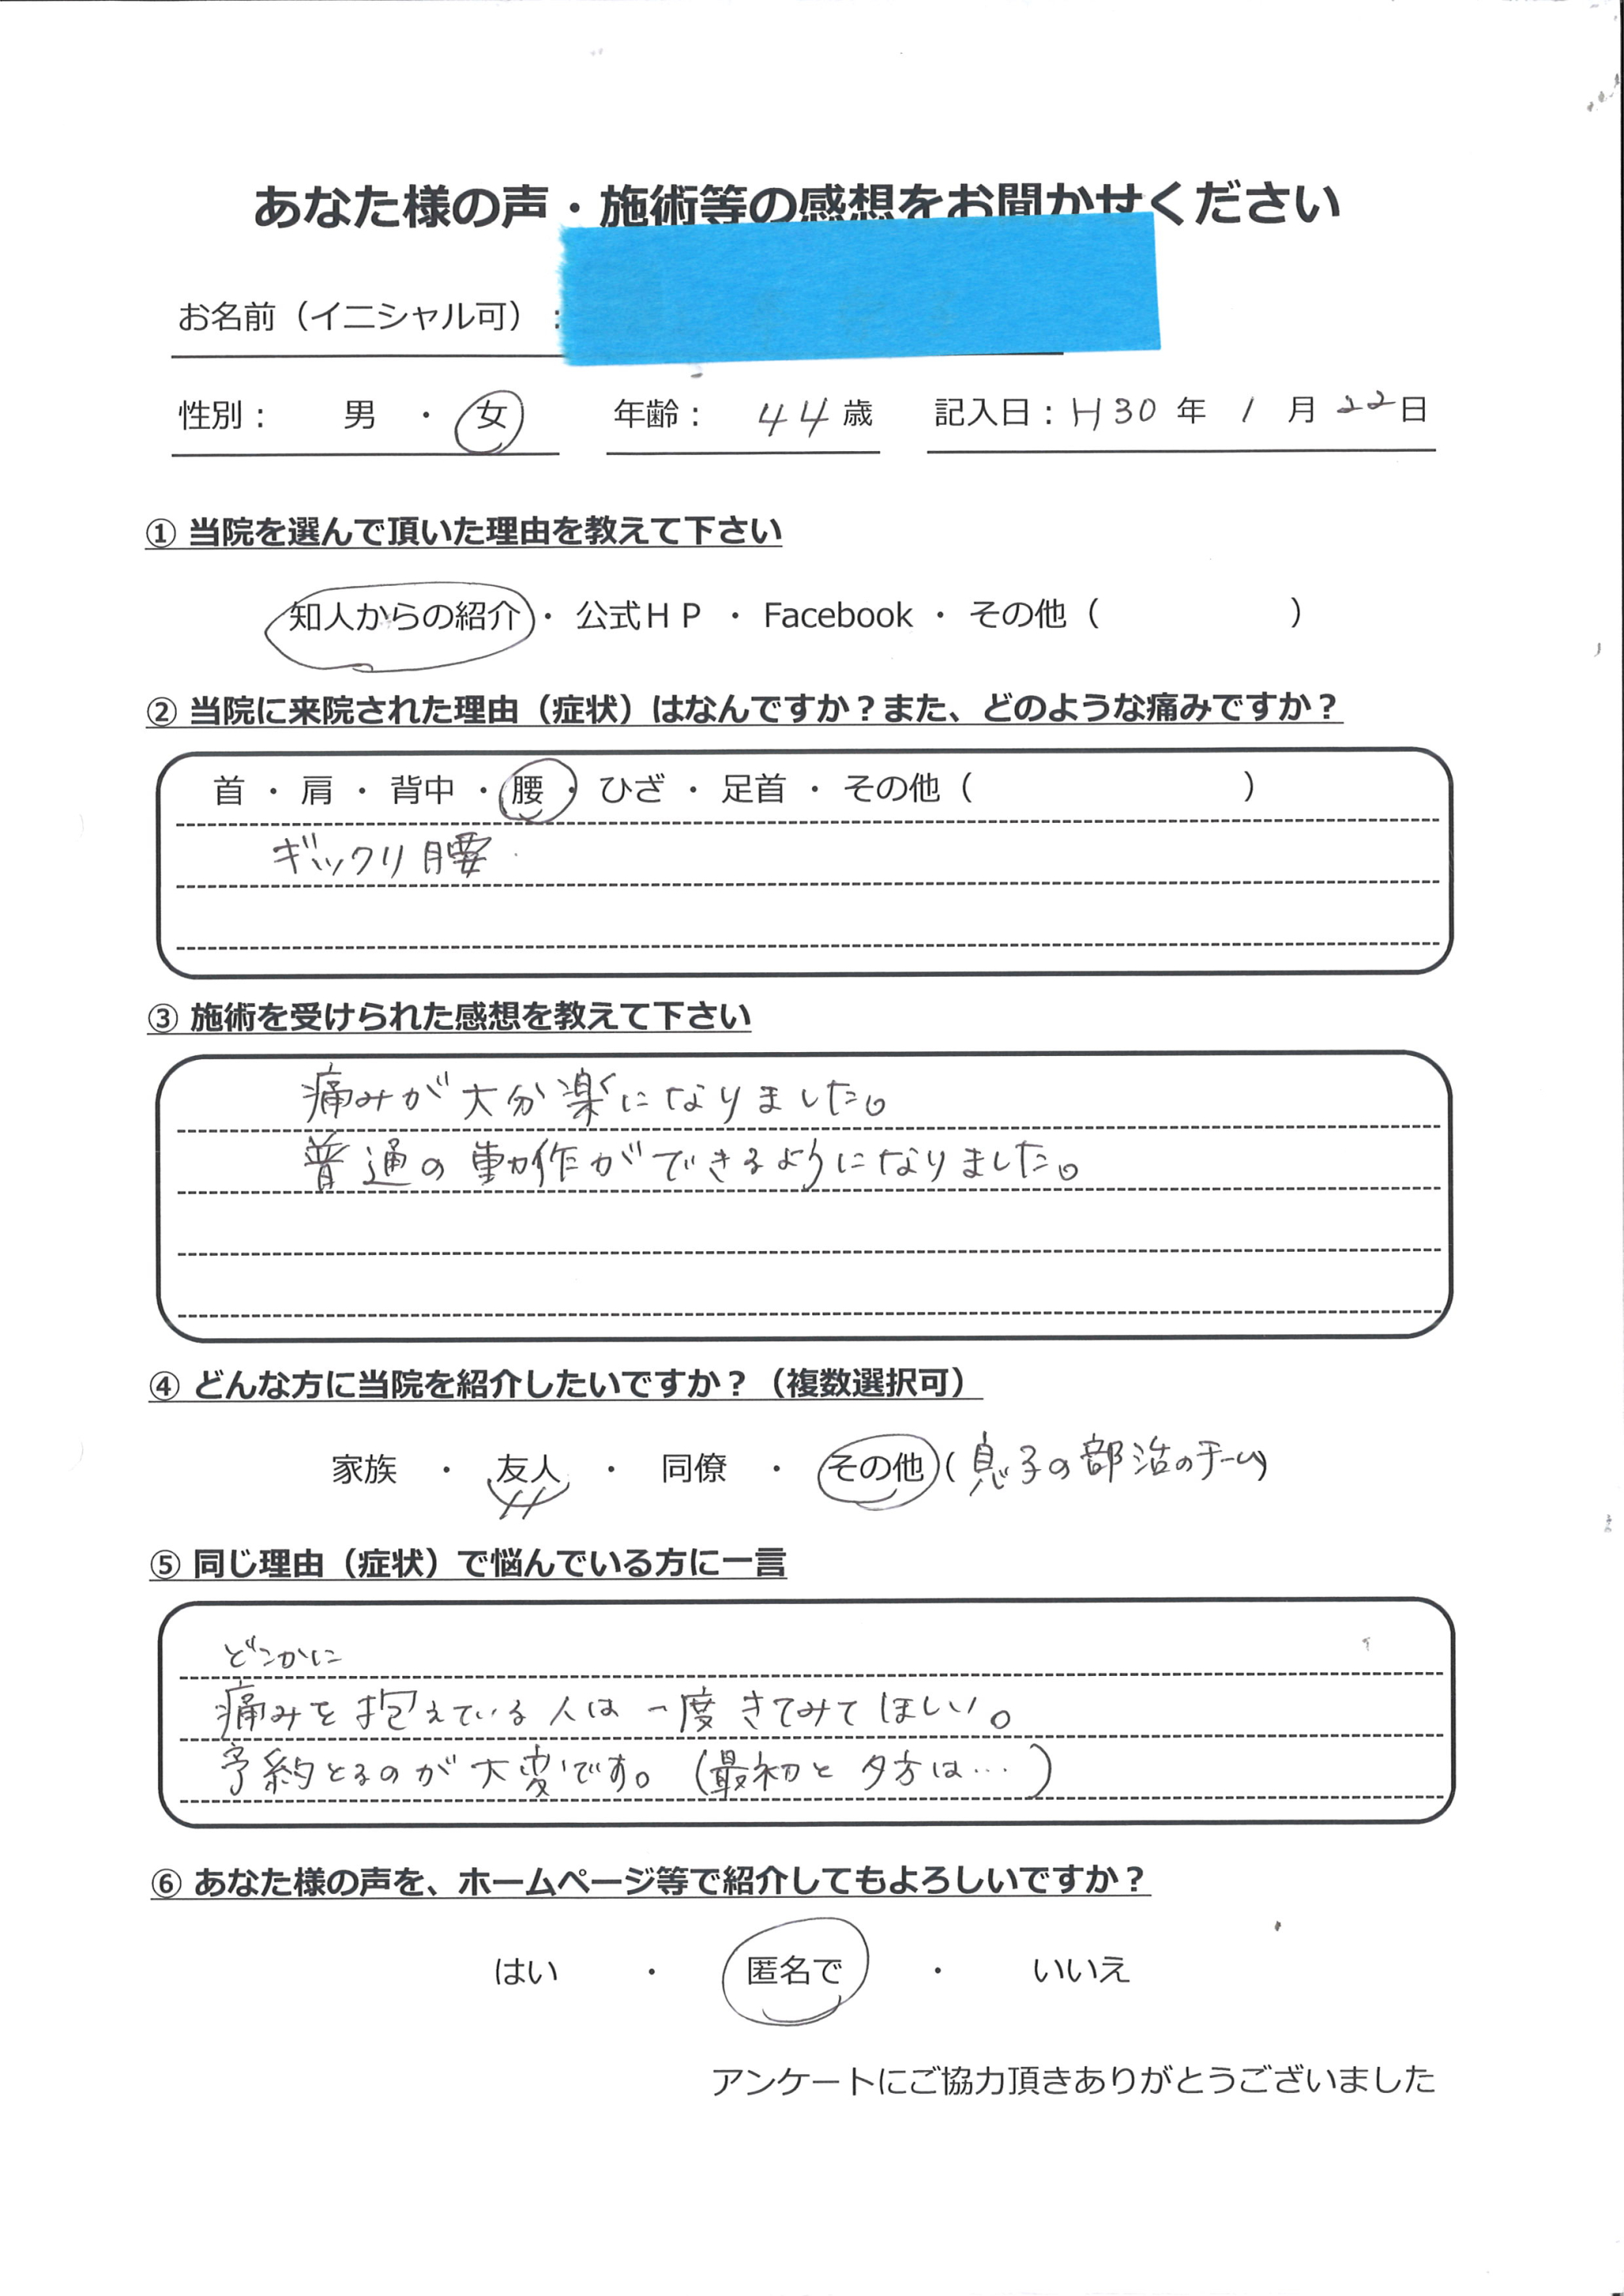 あなた様の声・施術等の感想をお聞かせください
お名前（イニシャル可）：
性別： 男 ・ 女 年齢： 44 歳 記入日：H30 年 1 月 22 日
① 当院を選んで頂いた理由を教えて下さい
知人からの紹介 ・ 公式ＨＰ ・ Facebook ・ その他（ ）
② 当院に来院された理由（症状）はなんですか？また、どのような痛みですか？
首 ・ 肩 ・ 背中 ・ 腰 ・ ひざ ・ 足首 ・ その他（ ）
ギックリ腰
③ 施術を受けられた感想を教えて下さい
痛みが大分楽になりました。
普通の動作ができるようになりました。
④ どんな方に当院を紹介したいですか？（複数選択可）
家族 ・ 友人 ・ 同僚 ・ その他（息子の部活のチーム）
⑤ 同じ理由（症状）で悩んでいる方に一言
どこかに
痛みを抱えている人は一度きてみてほしい。
予約とるのが大変です。（最初と夕方は…）
⑥ あなた様の声を、ホームページ等で紹介してもよろしいですか？
はい ・ 匿名で ・ いいえ
アンケートにご協力頂きありがとうございました